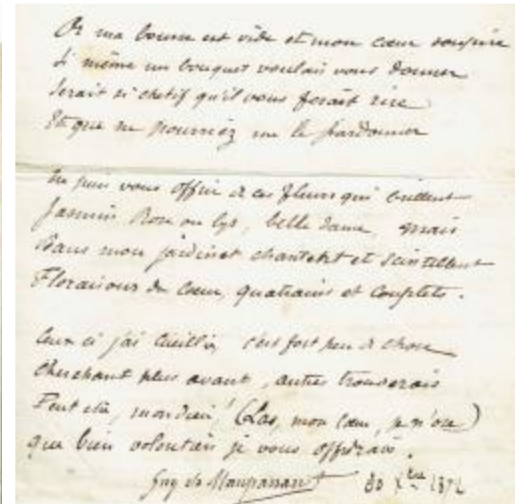 Or ma bourse est vide et mon cœur soupire
Si même un bouquet voulais vous donner
Serait si chétif qu'il vous ferait rire
Et que ne pourriez me le pardonner
Ne puis vous offrir de ces fleurs qui brillent
Jasmin Rose ou lys, belle dame, mais
Dans mon jardinet chantent et scintillent
Floraisons du cœur, quatrains et couplets.
Ceux ci j'ai cueillis, c'est fort peu de chose
Cherchant plus avant, autres trouverais
Peut etre, mon dieu! (Las, mon cœur, je n'ose)
que bien volontiers je vous offrirais.
Guy de Maupassant